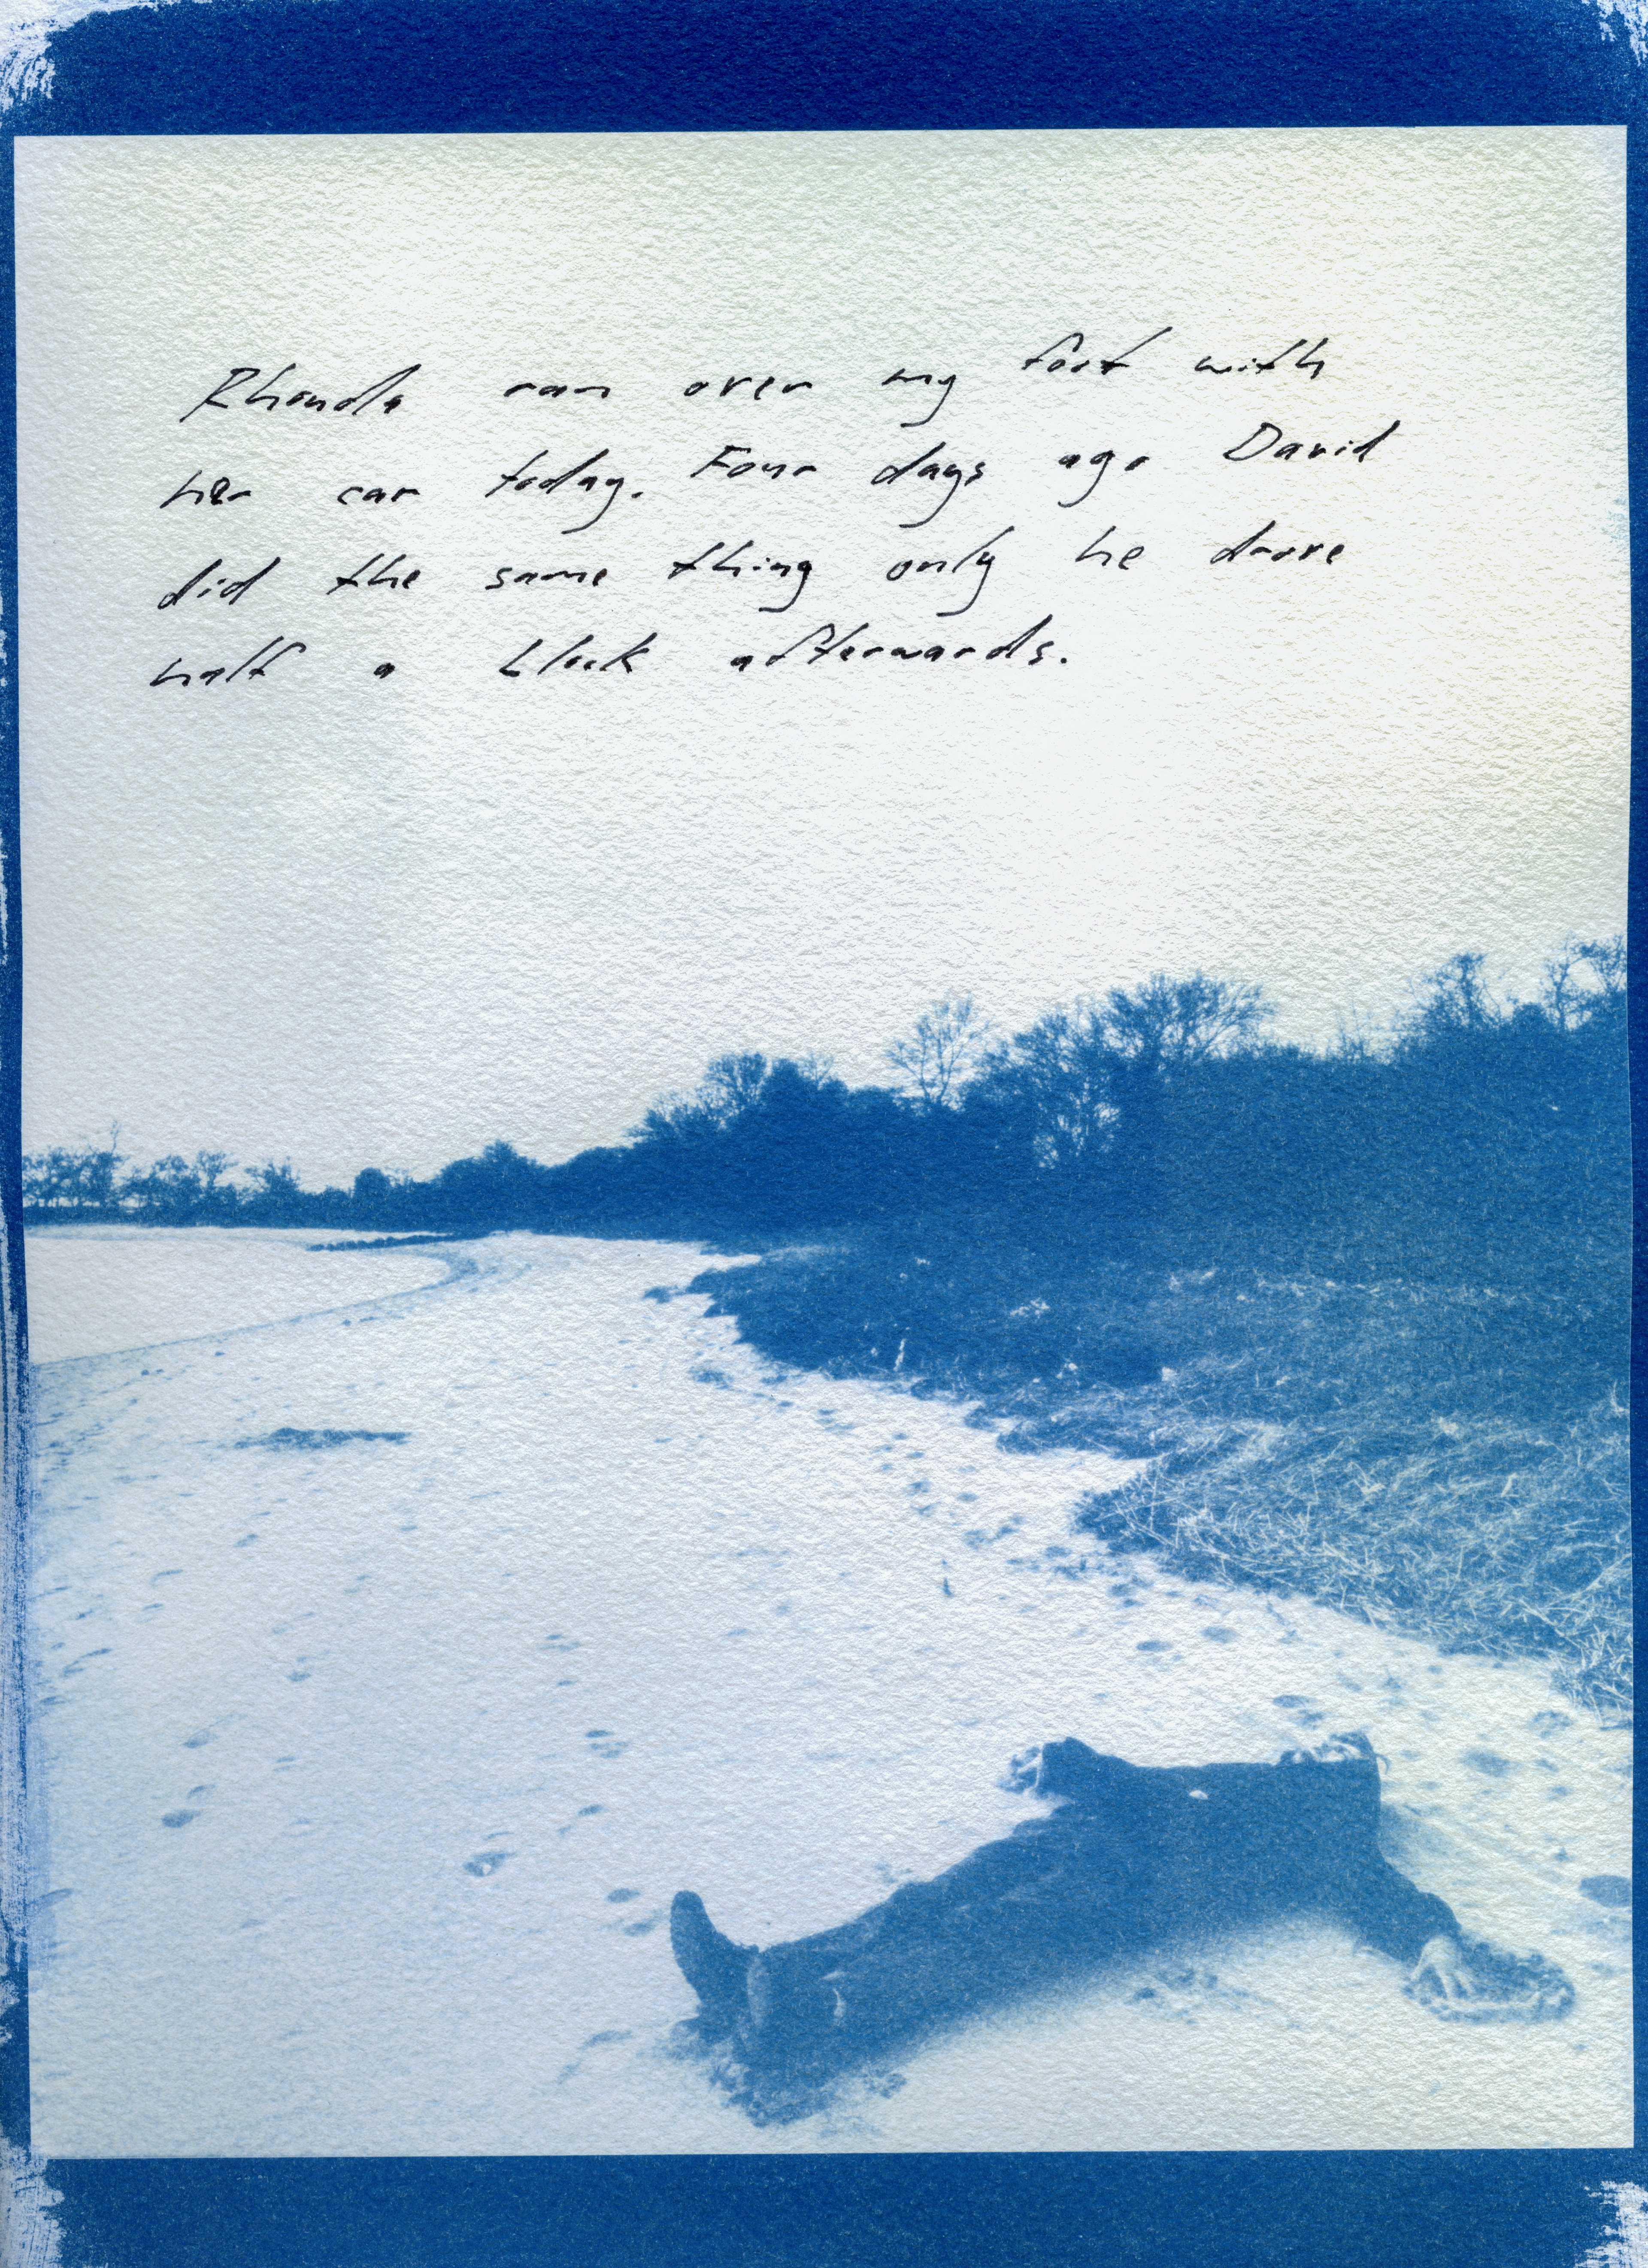 Rhonda ran over my foot with
her car today. Four days ago David
did the same thing only he drove
half a block afterwards.